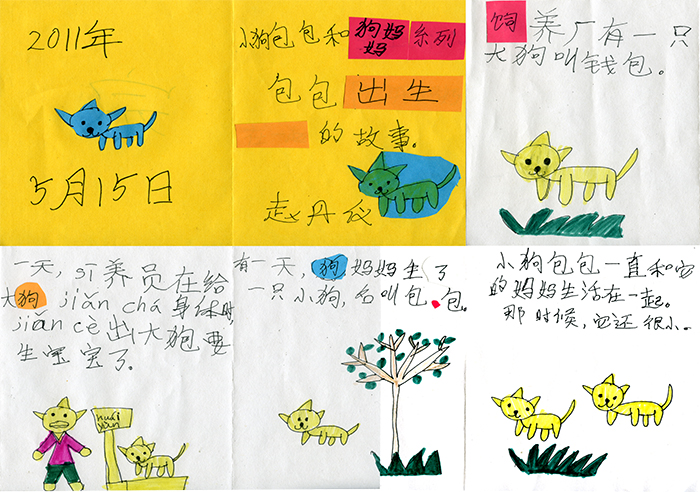 2011年
5月15日
小狗包包和狗妈妈系列
包包出生
的故事.
赵丹仪
饲养厂有一只
大狗叫钱包。
一天，sī养员在给
大狗jiǎn chá身体时
jiǎn cè出大狗要
生宝宝了.
huái
yùn
有一天，狗妈妈生了
一只小狗，名叫包包。
小狗包包一直和它
的妈妈生活在一起。
那时候，它还很小。